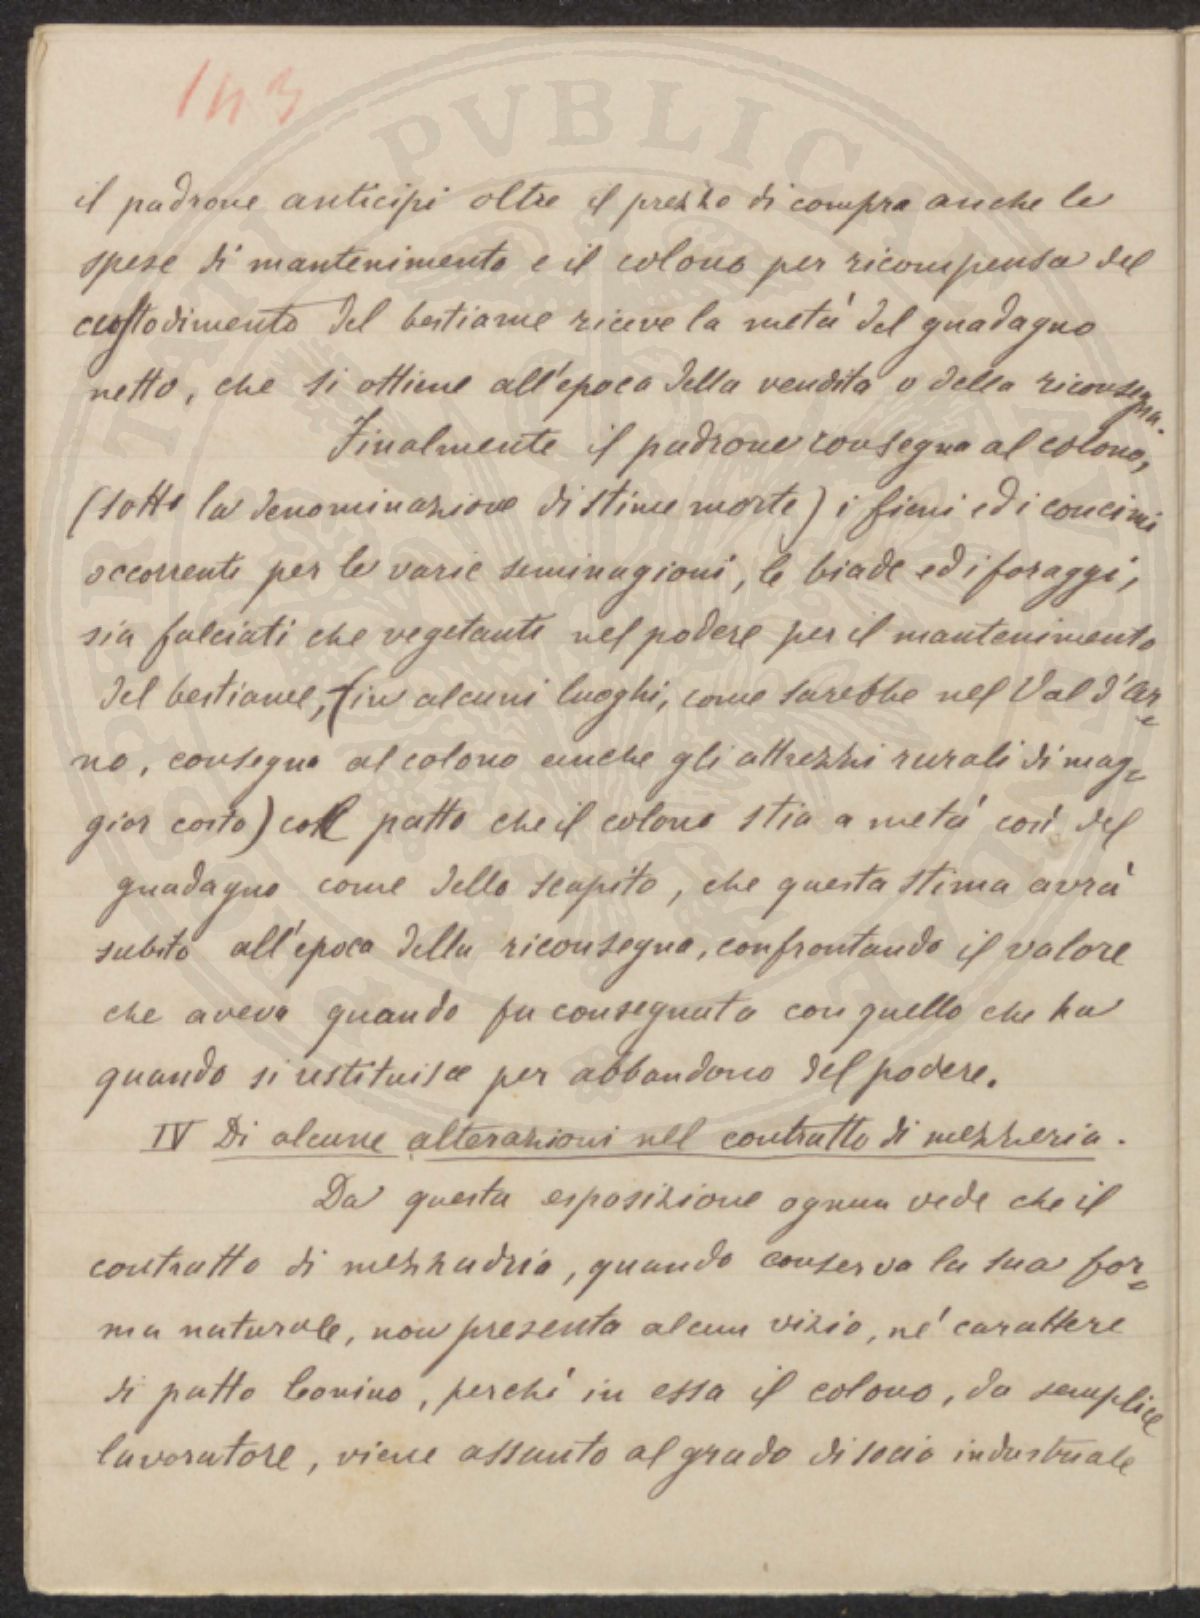 143
il padrone anticipi oltre il prezzo di compra anche le
spese di mantenimento e il colono per ricompensa del
custodimento del bestiame riceve la metá del guadagno
netto, che si ottiene all'epoca della vendita o della riconsegna.
Finalmente il padrone consegna al colono,
(sotto la denominazione di stime morte) i fieni ed i concimi
occorrenti per le varie seminagioni, le biade ed i foraggi,
sia falciati che vegetanti nel podere per il mantenimento
del bestiame, (in alcuni luoghi, come sarebbe nel Val d'Ar=
no, consegna al colono anche gli attrezzi rurali di mag=
gior costo) col patto che il colono stia a metá cosí del
guadagno come dello scapito, che questa stima avrá
subito all'epoca della riconsegna, confrontando il valore
che aveva quando fu consegnata con quello che ha
quando si restituisce per abbandono del podere.
IV Di alcune alterazioni nel contratto di mezzeria.
Da questa esposizione ognun vede che il
contratto di mezzadria, quando conserva la sua for=
ma naturale, non presenta alcun vizio, né carattere
di patto leonino, perché in essa il colono, da semplice
lavoratore, viene assunto al grado di socio industriale